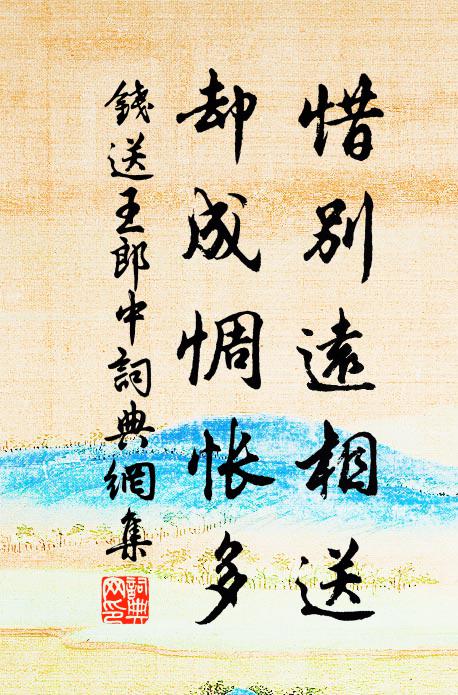 惜別遠相送
却成惆怅多
錢送王郎中詞典網集
詞典